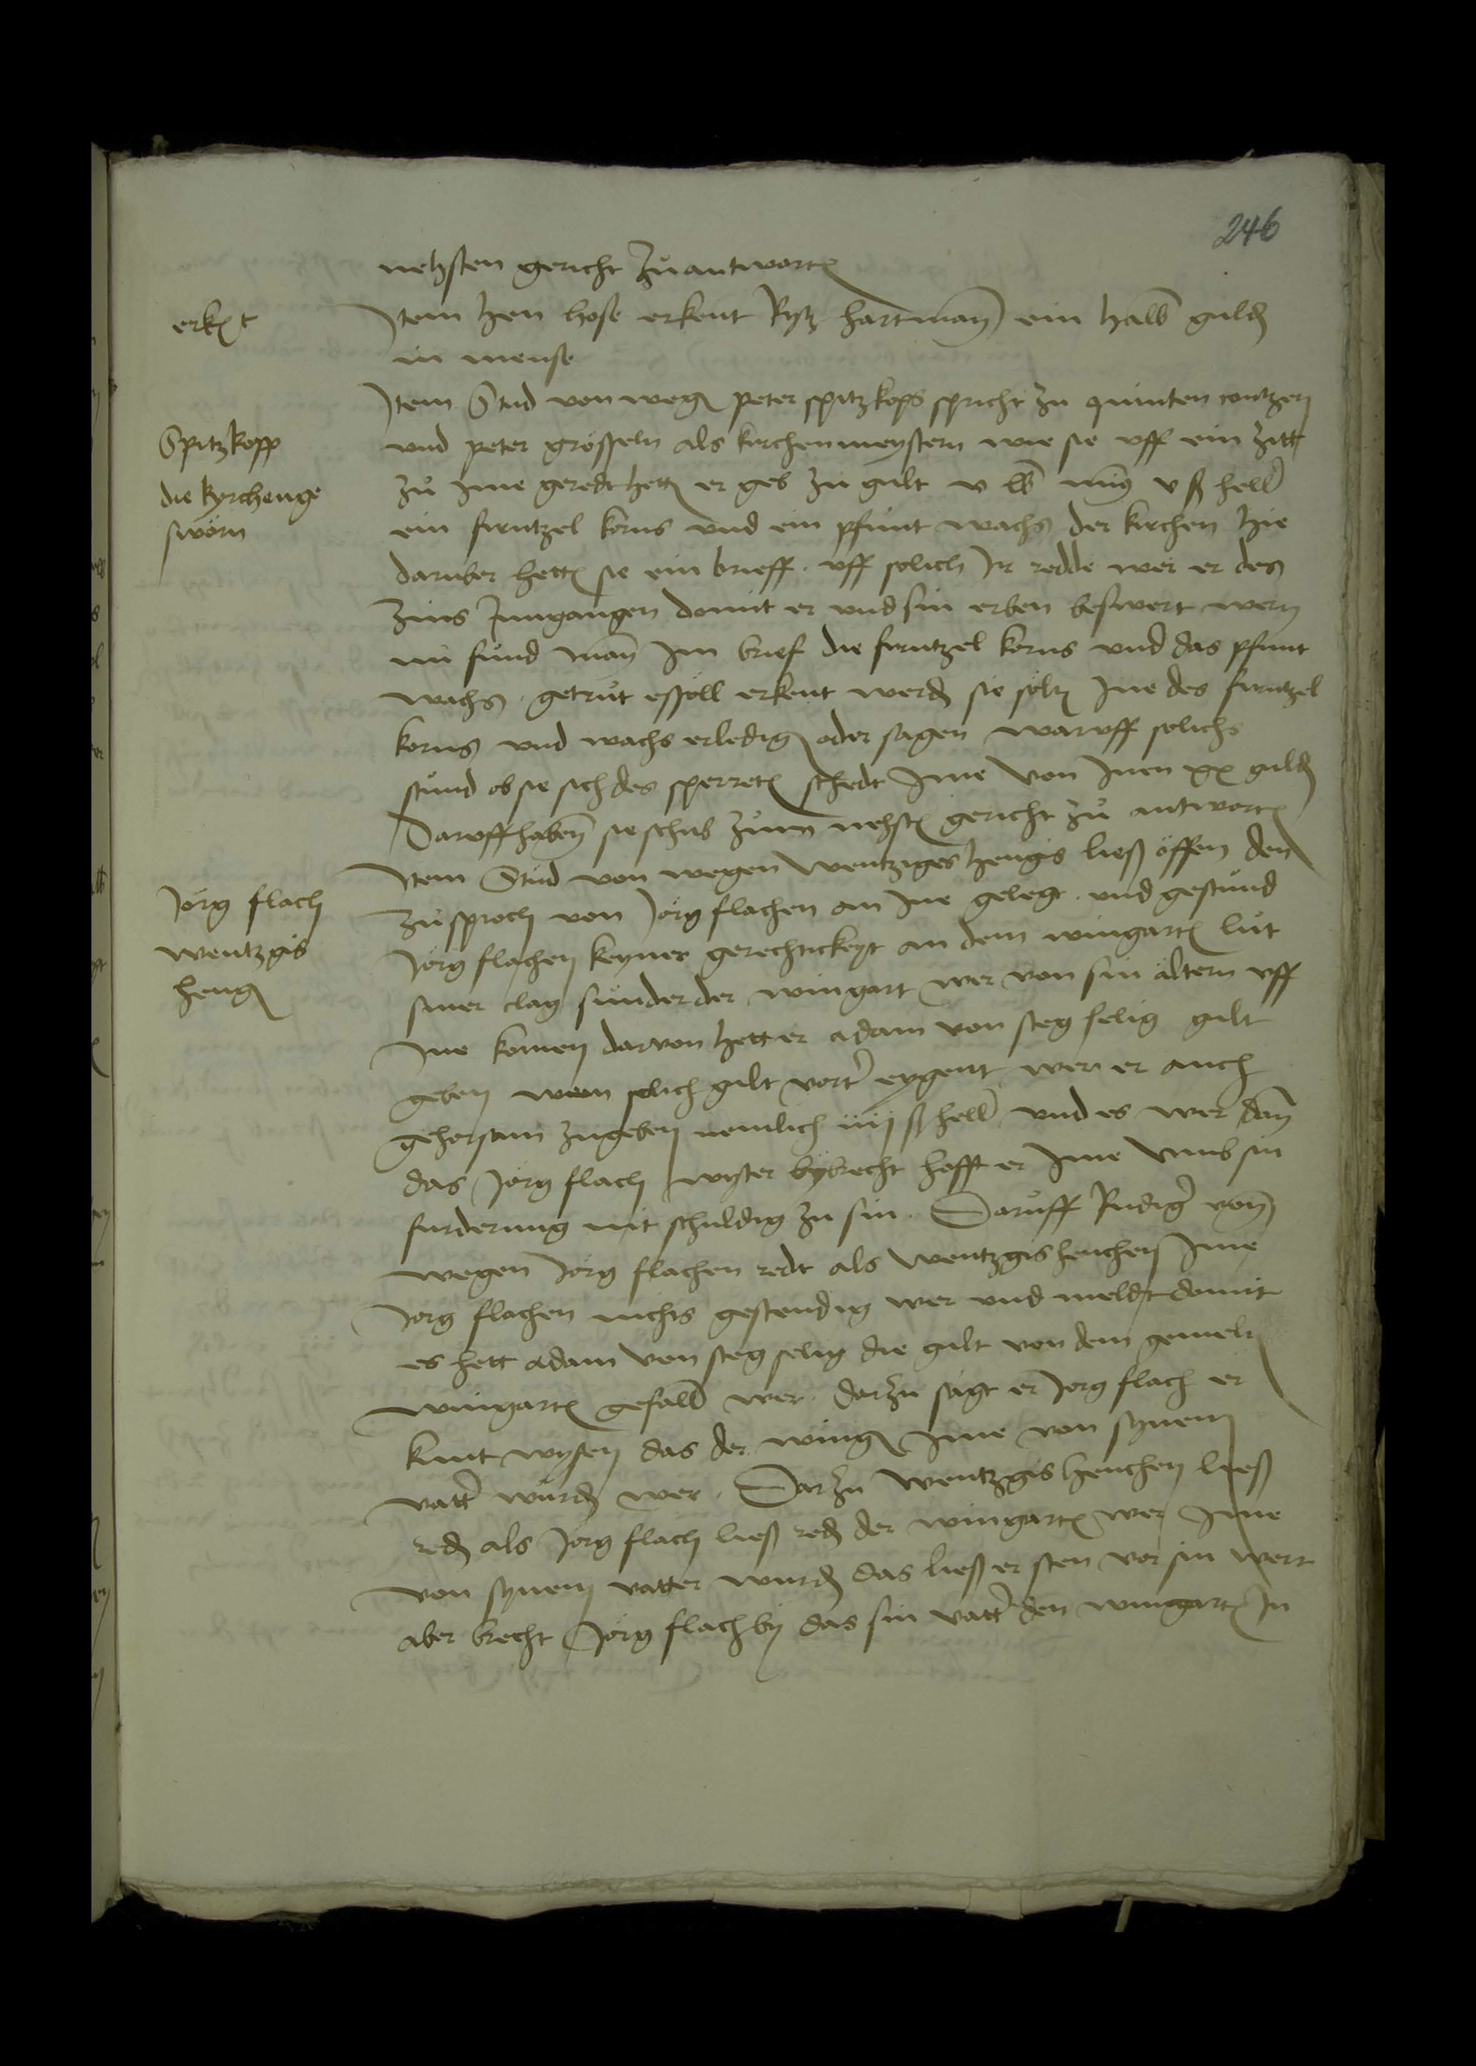 246
nehsten gericht zu antworten
erkent
Item Hen Hose erkent Rytz Hartman ein halb gulden
in mense
Item Stud von wegen Peter Spitzkops spricht zu Quinten Contzen
Spitzkopp
und Peter Grösseln als kirchenmeystern wie sie uff ein zitt
die kyrchenge
zu ime geredt hetten er geb zu gult v lb minus v ß heller
sworn
ein firntzel korns und ein pfunt wachs der kirchen hie
daruber hetten sie ein brieff. uff solich ir redde wer er des
zins Inngangen domit er und sin erben beswert wern
nu fund man im brief die firntzel korns und das pfunt
wachs. getrut es soll erkent werden sie solten ine des firntzel
korns und wachs erledigen oder sagen waruff solichs
stund ob sie sich des sperreten schedt ime von inen xx gulden
Daruff haben sie schub zum nehsten gericht zu antworten
Item Stud von wegen Wentziges Hengis ließ öffen den
Jörg Flach
zusproch von Jörg Flachen an ine gelegt. und gestund
Wentzgis
Jörg Flachen keyner gerechtickeyt an dem wingarten lut
Heng
siner clag sunder der wingart wer von sin ältern uff
ine komen darvon hett er Adam von Steg selig gult
geben wem solich gult vorter eygent wer er auch
gehorsam zugeben nemlich iiij ß heller und es wer dan
das Jörg Flach wyter bybrecht hofft er ime umb sin
furderung nit schuldig zu sin. Daruff Rudiger von
wegen Jörg Flachen redt als Wentzgis Henchen ime
Jorg Flachen nichts gestendig wer und meldt domit
es hett Adam von Steg selig die gult von dem gemelten
wingarten gefallen wer. darzu sagt er Jorg Flach er
kunt wysen das der wingen ime von synem
vatter wurden wer. Darzu Wentzgis Henchen ließ
reden als Jorg Flach ließ reden der wingarten wer ime
von synem vatter wurden das ließ er sten vor sin wert
aber brecht Jörg Flach by das sin vatter den wingarten in